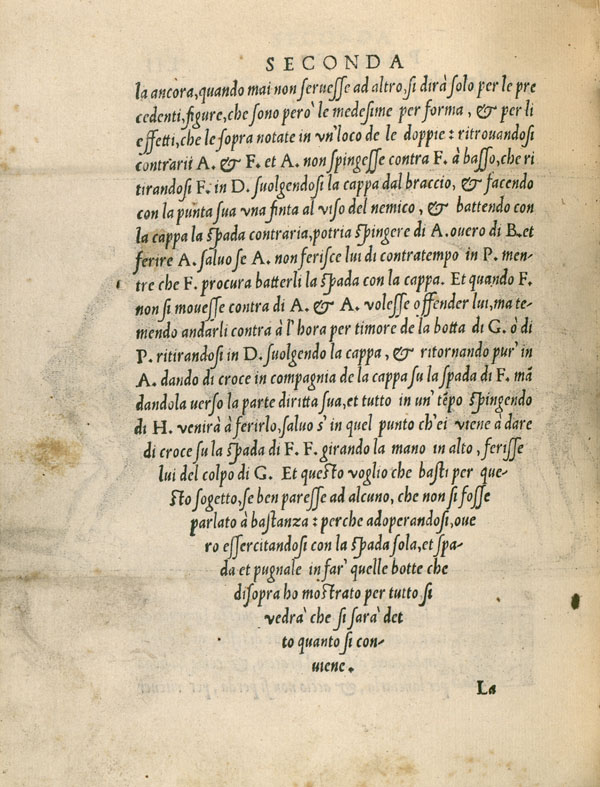 SECONDA
la ancora,quando mai non seruesse ad altro,si dirà solo per le pre
cedenti,figure,che sono però le medesime per forma, & per li
effetti,che le sopra notate in vn'loco de le doppie: ritrouandosi
contrarii A. & F. et A. non spingesse contra F. à basso,che ri
tirandosi F. in D. suolgendosi la cappa dal braccio, & facendo
con la punta sua vna finta al viso del nemico, & battendo con
la cappa la spada contraria,potria spingere di A.ouero di B.et
ferire A. saluo se A. non ferisce lui di contratempo in P. men-
tre che F. procura batterli la spada con la cappa. Et quando F.
non si mouesse contra di A. & A. volesse offender lui,ma te-
mendo andarli contra à l'hora per timore de la botta di G. ò di
P. ritirandosi in D. suolgendo la cappa, & ritornando pur'in
A. dando di croce in compagnia de la cappa su la spada di F. mã
dandola uerso la parte diritta sua,et tutto in un'tẽpo spingendo
di H. venirà à ferirlo,saluo s'in quel punto ch'ei viene à dare
di croce su la spada di F. F. girando la mano in alto, ferisse
lui del colpo di G. Et questo voglio che basti per que-
sto sogetto,se ben paresse ad alcuno, che non si fosse
parlato à bastanza: perche adoperandosi,oue
ro essercitandosi con la spada sola,et spa-
da et pugnale in far'quelle botte che
disopra ho mostrato per tutto si
vedrà che si sarà det
to quanto si con-
uiene.
La